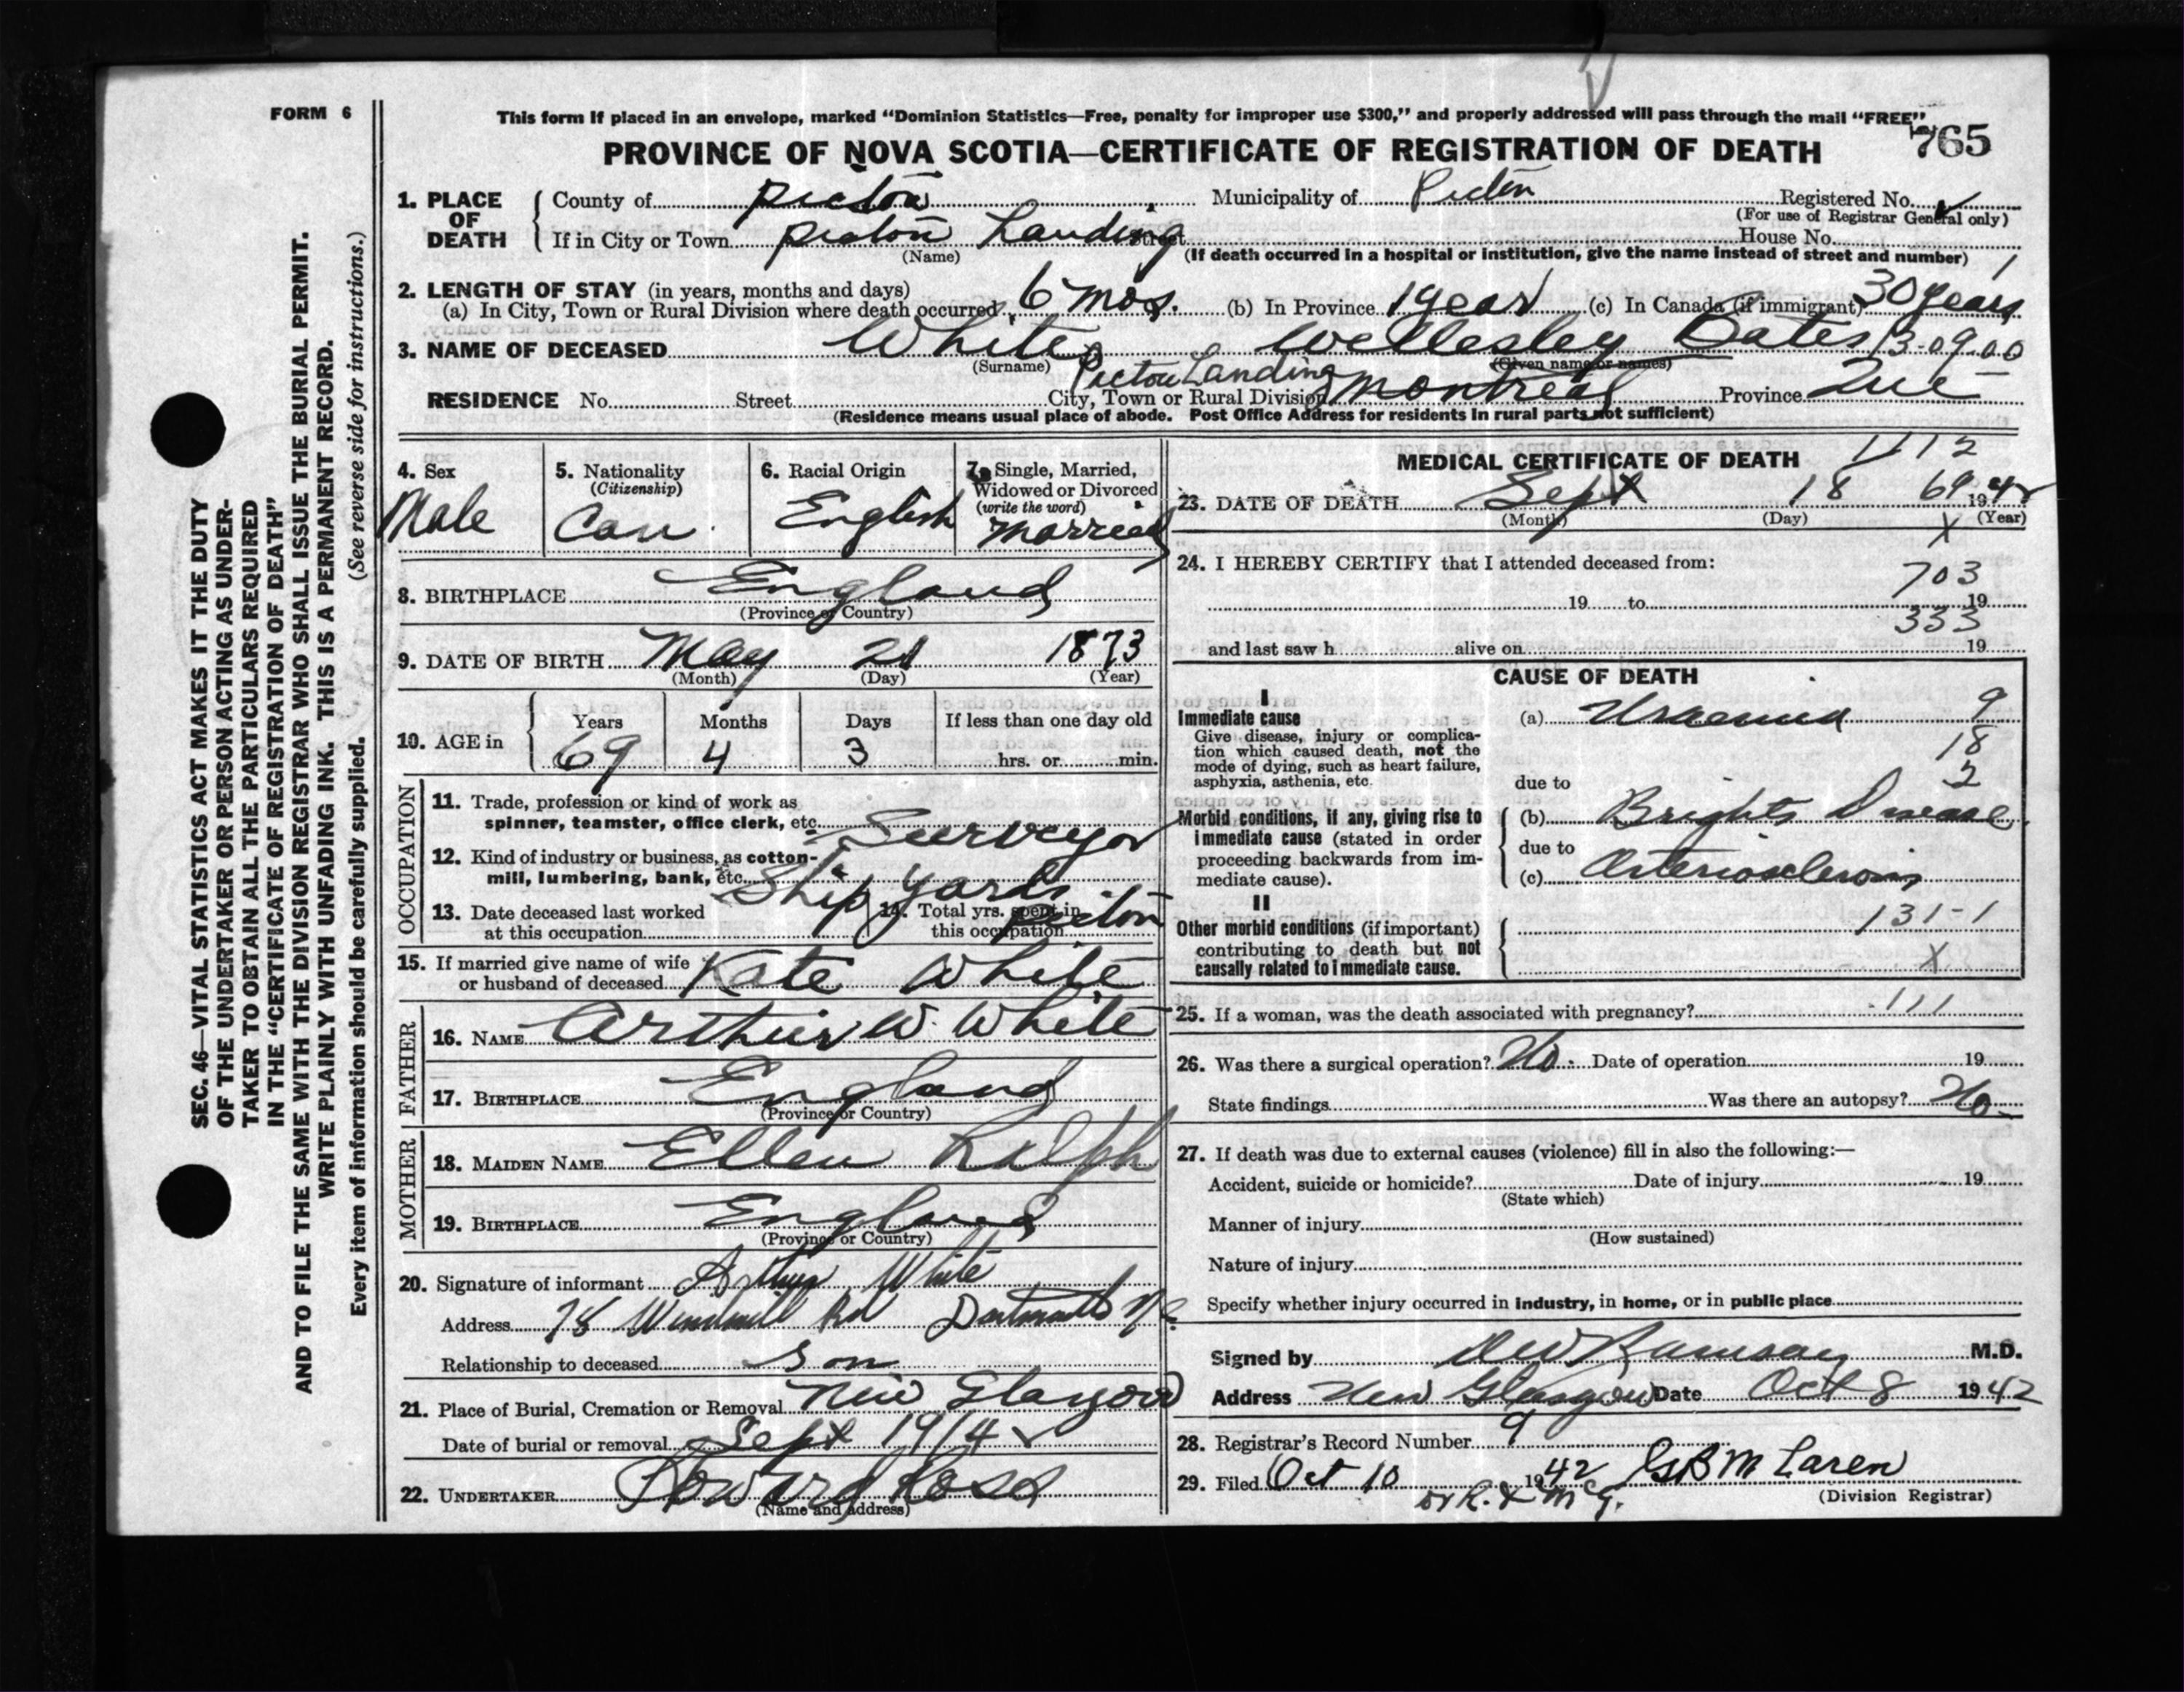 FORM 6
This form if placed in an envelope, marked “Dominion Statistics—Free, penalty for improper use $300,” and properly addressed will pass through the mail “FREE”
765
PROVINCE OF NOVA SCOTIA—CERTIFICATE OF REGISTRATION OF DEATH
1. PLACE OF DEATH
County of Pictou Municipality of Pictou Registered No.
(For use of Registrar General only)
If in City or Town Pictou Landing Street House No.
(Name) (If death occurred in a hospital or institution, give the name instead of street and number) 1
2. LENGTH OF STAY (in years, months and days)
(a) In City, Town or Rural Division where death occurred 6 mos. (b) In Province 1 year (c) In Canada (if immigrant) 30 years
3. NAME OF DECEASED White Wellesley Oates 13-09-00
(Surname) (Given name or names)
Pictou Landing
RESIDENCE No. Street City, Town or Rural Division Montreal Province Que
(Residence means usual place of abode. Post Office Address for residents in rural parts not sufficient)
4. Sex
Male
5. Nationality
(Citizenship)
Can
6. Racial Origin
English
7. Single, Married,
Widowed or Divorced
(write the word)
Married
8. BIRTHPLACE England
(Province or Country)
9. DATE OF BIRTH May 21 1873
(Month) (Day) (Year)
10. AGE in
Years Months Days If less than one day old
69 4 3 hrs. or min.
OCCUPATION
11. Trade, profession or kind of work as
spinner, teamster, office clerk, etc. Surveyor
12. Kind of industry or business, as cotton-
mill, lumbering, bank, etc. Ship Yards
Pictou
13. Date deceased last worked
at this occupation
14. Total yrs. spent in
this occupation
15. If married give name of wife
or husband of deceased Kate White
FATHER
16. NAME Arthur W. White
17. BIRTHPLACE England
(Province or Country)
MOTHER
18. MAIDEN NAME Ellen Ralph
19. BIRTHPLACE England
(Province or Country)
20. Signature of informant Arthur White
Address 78 Windmill Rd Dartmouth
Relationship to deceased son
21. Place of Burial, Cremation or Removal New Glasgow
Date of burial or removal Sept 19/42
22. UNDERTAKER Howard Ross
(Name and address)
MEDICAL CERTIFICATE OF DEATH
1112
23. DATE OF DEATH Sept 18 69 1942
(Month) (Day) (Year)
X
24. I HEREBY CERTIFY that I attended deceased from:
703
19 to 19
333
and last saw h alive on 19
CAUSE OF DEATH
I
Immediate cause
Give disease, injury or complica-
tion which caused death, not the
mode of dying, such as heart failure,
asphyxia, asthenia, etc.
(a) Uraemia 9
18
2
due to
Morbid conditions, if any, giving rise to
immediate cause (stated in order
proceeding backwards from im-
mediate cause).
(b) Brights Disease
due to
(c) Arteriosclerosis
II
Other morbid conditions (if important)
contributing to death but not
causally related to immediate cause.
131-1
X
25. If a woman, was the death associated with pregnancy? 111
26. Was there a surgical operation? No. Date of operation 19
State findings Was there an autopsy? No
27. If death was due to external causes (violence) fill in also the following:—
Accident, suicide or homicide? Date of injury 19
(State which)
Manner of injury
(How sustained)
Nature of injury
Specify whether injury occurred in industry, in home, or in public place
Signed by Ramsay M.D.
Address New Glasgow Date Oct 8 1942
28. Registrar's Record Number 9
29. Filed Oct 10 1942 McLaren
(Division Registrar)
SEC. 46—VITAL STATISTICS ACT MAKES IT THE DUTY
OF THE UNDERTAKER OR PERSON ACTING AS UNDER-
TAKER TO OBTAIN ALL THE PARTICULARS REQUIRED
IN THE “CERTIFICATE OF REGISTRATION OF DEATH”
AND TO FILE THE SAME WITH THE DIVISION REGISTRAR WHO SHALL ISSUE THE BURIAL PERMIT.
WRITE PLAINLY WITH UNFADING INK. THIS IS A PERMANENT RECORD.
Every item of information should be carefully supplied. (See reverse side for instructions.)